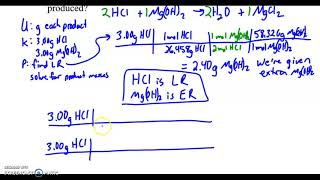 produced?
2HCl + 1Mg(OH)₂ → 2H₂O + 1MgCl₂
U: g each product
K: 3.00g HCl
3.00g Mg(OH)₂
P: find LR
solve for product masses
3.00g HCl | 1mol HCl | 1mol Mg(OH)₂ | 58.326g Mg(OH)₂
36.458g HCl | 2mol HCl | 1mol
= 2.40g Mg(OH)₂ we're given
extra Mg(OH)₂
HCl is LR
Mg(OH)₂ is ER
3.00g HCl
3.00g HCl